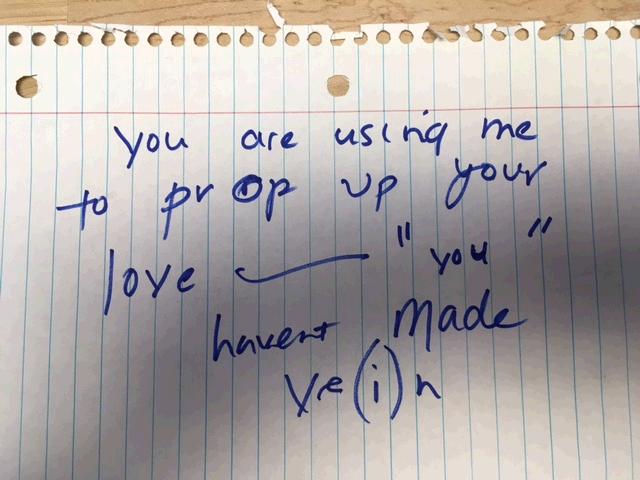 you are using me
to prop up your
love — "you"
havent made
ve(i)n